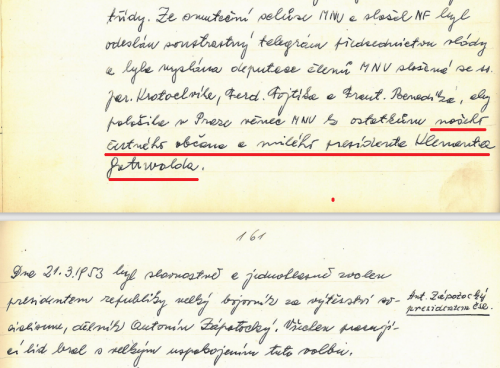 třídy. Ze smuteční schůze MNV a složek NF byl
odeslán soustrastný telegram předsednictvu vlády
a byla vyslána deputace členů MNV složená se ss.
Jar. Kratochvíle, Ferd. Fojtíka a Frant. Benedíka, aby
položila v Praze věnec MNV k ostatkům našeho
čestného občana a milého presidenta Klementa
Gottwalda.
161
Dne 21.3.1953 byl slavnostně a jednohlasně zvolen
presidentem republiky velký bojovník za vítězství so-
cialismu, dělník Antonín Zápotocký. Všechen pracují-
cí lid bral s velkým uspokojením tuto volbu.
Ant. Zápotocký
presidentem ČSR.